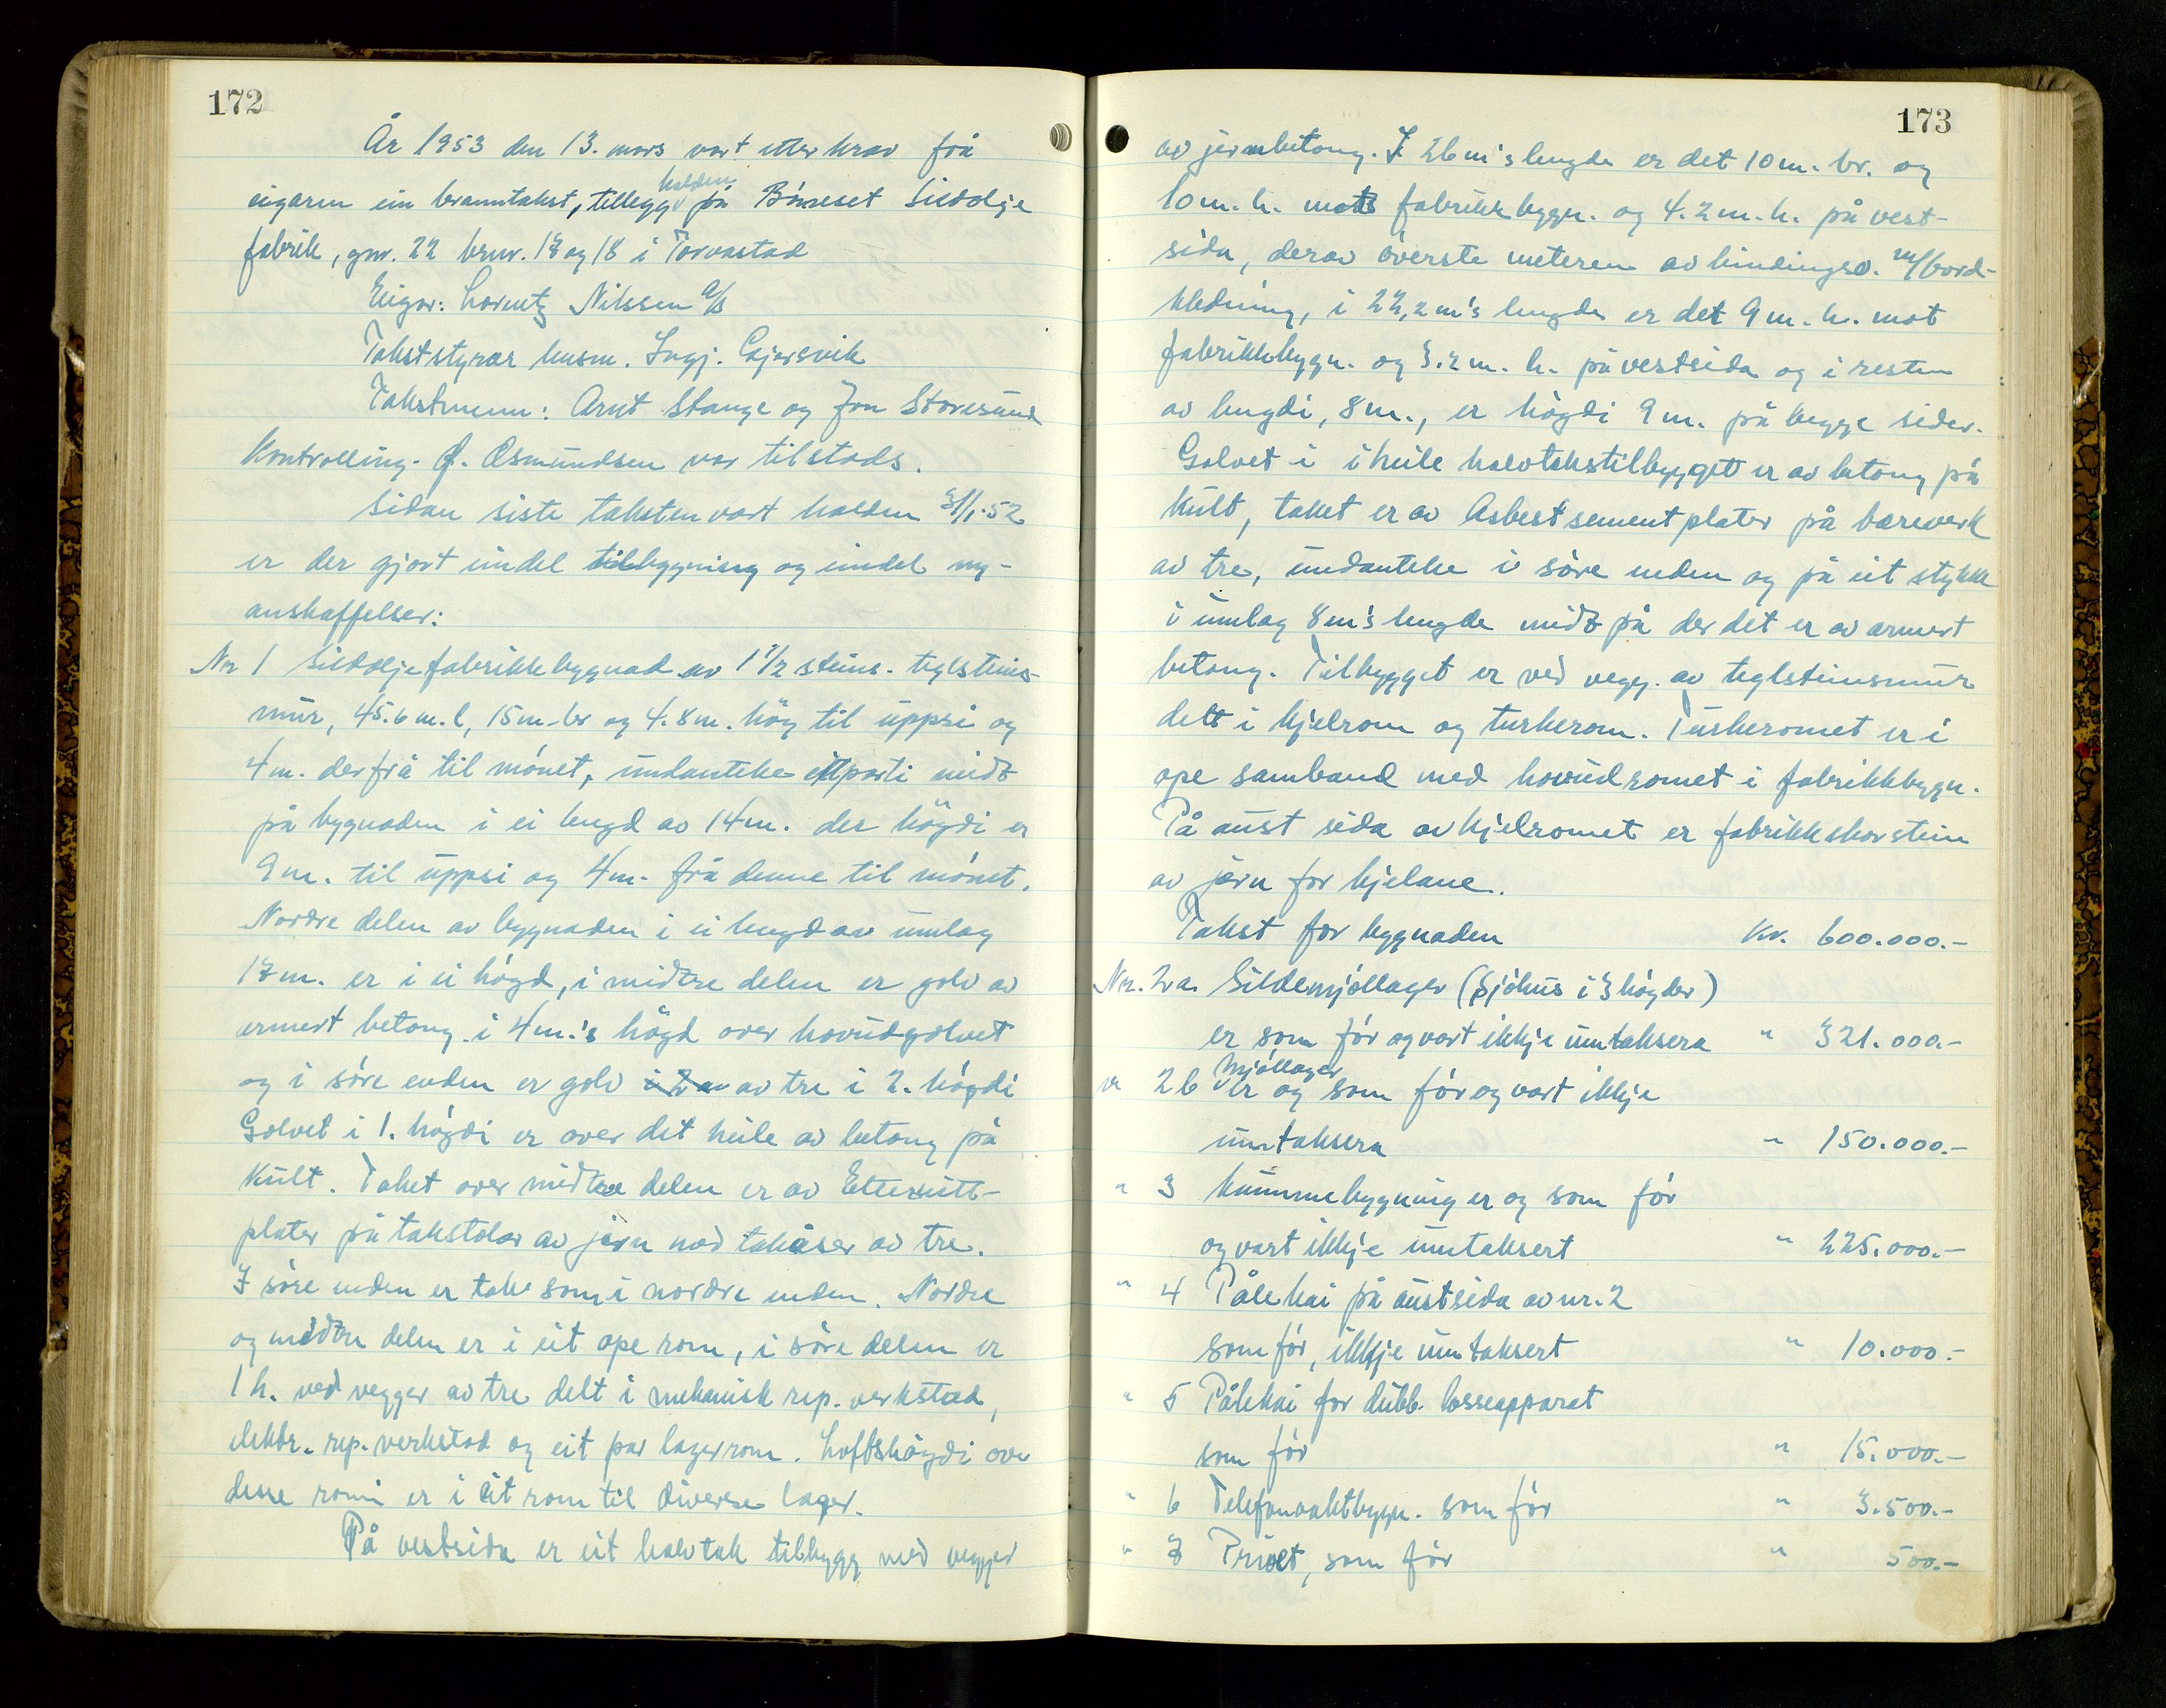 172
År 1953 den 13. mars vart etter krav frå
eigaren ein branntakst, tillegg halden på Bøneset Sildolje
fabrik, gnr. 22 brnr. 17 og 18 i Torvastad
Eigar: Lorentz Nilssen A/S
Takststyrar lensm. Ingj. Gjersvik
Takstmenn: Arnt Stange og Jon Storesund
Kontrolling. Ø. Osmundsen var tilstads.
Sidan siste taksten vart halden 31/1-52
er der gjort eindel tilbygning og eindel ny-
anskaffelser:
Nr 1 Sildoljefabrikkbygnad av 1 1/2 steins. teglsteins-
mur, 45.6 m. l, 15 m. br og 4.8 m. høg til uppsi og
4 m. derfrå til mønet, undanteke eitt parti midt
på bygnaden i ei lengd av 14 m. der högdi er
9 m. til uppsi og 4 m. frå denne til mønet.
Nordre delen av bygnaden i ei lengd av umlag
17 m. er i ei høgd, i midtre delen er golv av
armert betong i 4 m.'s høgd over hovudgolvet
og i søre enden er golv av tre i 2. høgdi
Golvet i 1. høgdi er over det heile av betong på
Kult. Taket over midtre delen er av Etternitt-
plater på takstolar av jern med takåser av tre.
I søre enden er tak som i nordre enden. Nordre
og midtre delen er i eit ope rom, i søre delen er
1 h. ved vegger av tre delt i mekanisk rep. verkstad,
elektr. rep. verkstad og eit par lagerrom. Loftshøgdi over
desse romi er i eit rom til diverse lager.
På vestsida er eit halvtak tilbygg med vegger
173
av jernbetong. I 26 m's lengde er det 10 m. br. og
10 m. h. mot fabrikkbygn. og 4.2 m. h. på vest-
sida, derav øverste meteren av bindingsv. m/bord-
kledning, i 22,2 m's lengde er det 9 m. h. mot
fabrikkbygn. og 3.2 m. h. på vestsida og i resten
av lengdi, 8 m., er høgdi 9 m. på begge sider.
Golvet i i heile halvtakstilbygget er av betong på
Kult, taket er av Asbestsementplater på bæreverk
av tre, undanteke i søre enden og på eit stykke
i umlag 8 m's lengde midt på der det er av armert
betong. Tilbygget er ved vegg. av teglsteinsmur
delt i kjelrom og turkerom. Turkeromet er i
ope samband med hovudromet i fabrikkbygn.
På aust sida av kjelromet er fabrikkskorstein
av jern for kjelane.
Takst for bygnaden Kr. 600.000.-
Nr. 2a. Sildemjøllager (Sjøhus i 3 høgder)
er som før og vart ikkje umtaksera " 321.000.-
" 2b Mjøllager er og som før og vart ikkje
umtaksera " 150.000.-
" 3 Kummebygning er og som før
og vart ikkje umtaksert " 225.000.-
" 4 Pålekai på austsida av nr. 2
som før, ikkje umtaksert " 10.000.-
" 5 Pålekai for dubb. losseapparat
som før " 15.000.-
" 6 Telefonvaktbygn. som før " 3.500.-
" 7 Privet, som før " 500.-